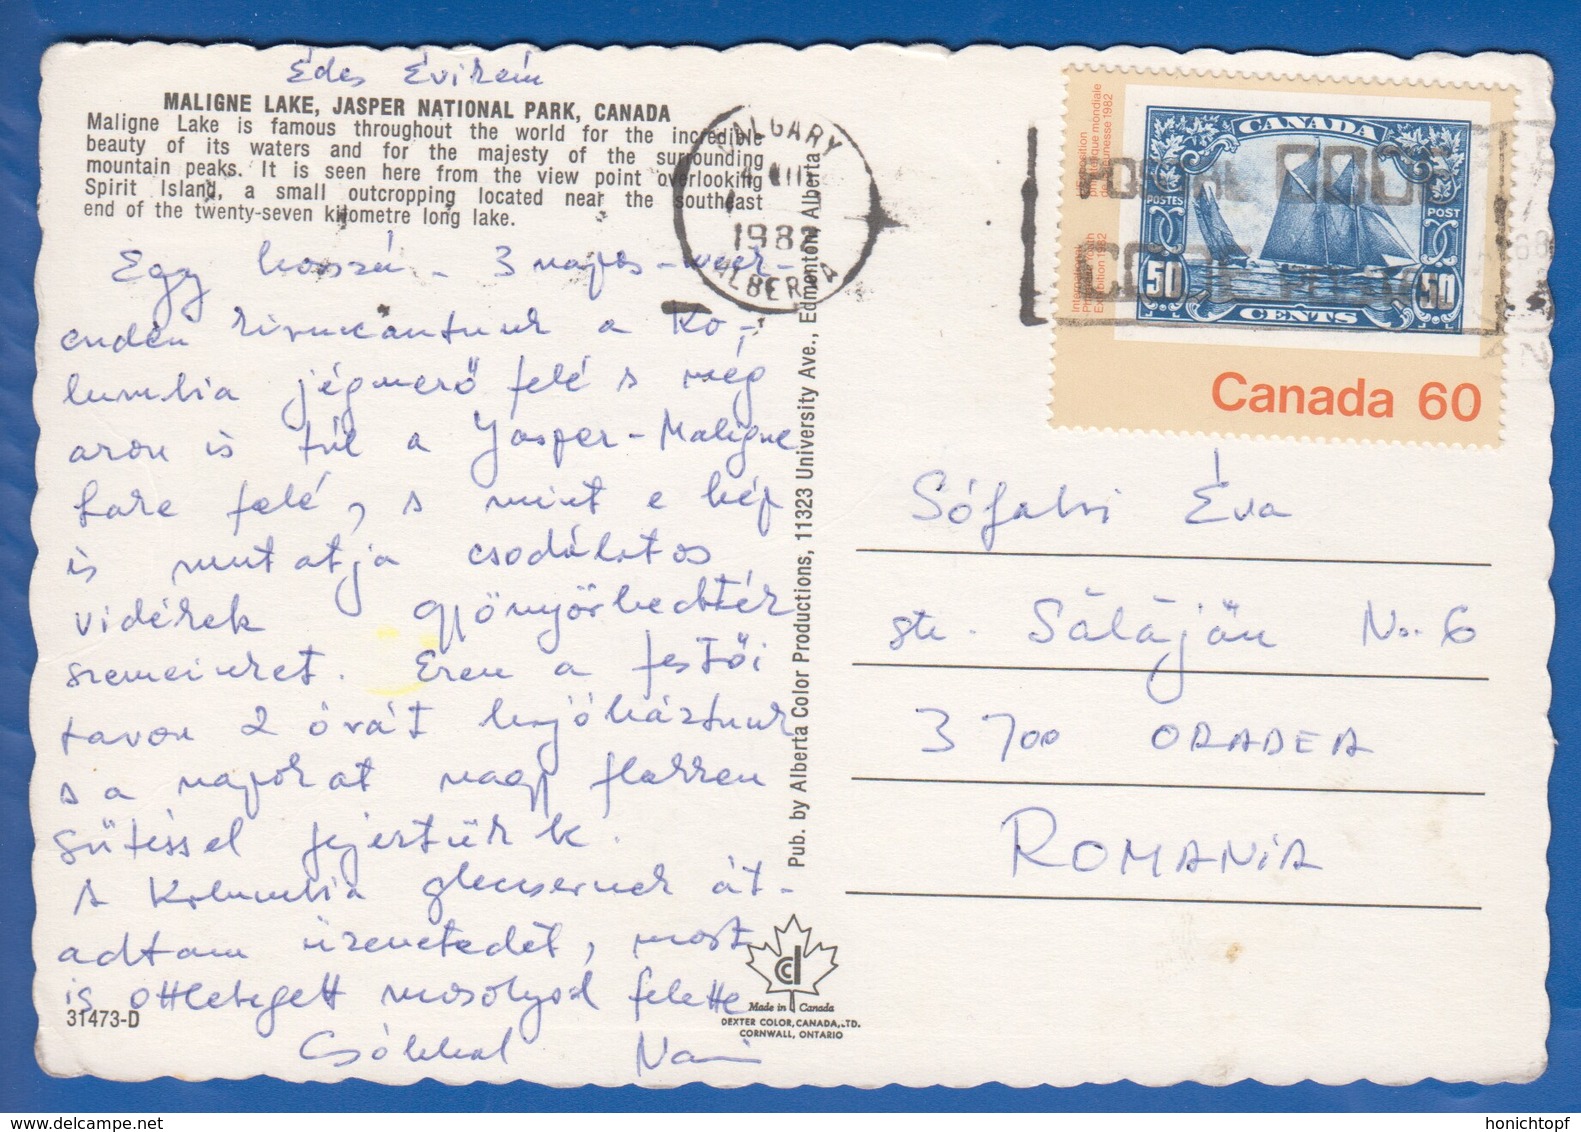 Édes Évikém
MALIGNE LAKE, JASPER NATIONAL PARK, CANADA
Maligne Lake is famous throughout the world for the incredible
beauty of its waters and for the majesty of the surrounding
mountain peaks. It is seen here from the view point overlooking
Spirit Island, a small outcropping located near the southeast
end of the twenty-seven kilometre long lake.
Egy hosszú - 3 napos - week-
enden kiruccantunk a Ko-
lumbia jégmező felé s még
azon is túl a Jasper-Maligne
tava felé, s mint e kép
is mutatja csodálatos
vidéket gyönyörködték
szemeinket. Ezen a festői
tavon 2 órát hajókáztunk
s a napokat nagy flekken
sütéssel fejeztük be.
A Kolumbia gleccsernek át-
adtam üzenetedet, most
is ottlétedet mosolyod felette
Csókkal Nani
31473-D
Pub. by Alberta Color Productions, 11323 University Ave., Edmonton, Alberta
Made in Canada
DEXTER COLOR, CANADA, LTD.
CORNWALL, ONTARIO
CALGARY
1982
ALBERTA
POSTAL CODE
CODE POSTAL
International
Philatelic Youth
Exhibition 1982
L'Exposition
philatélique mondiale
de la jeunesse 1982
CANADA
POSTES POST
50 50
CENTS
Canada 60
Sófalvi Éva
str. Sălăjan No. 6
3700 ORADEA
ROMANIA
honichtopf